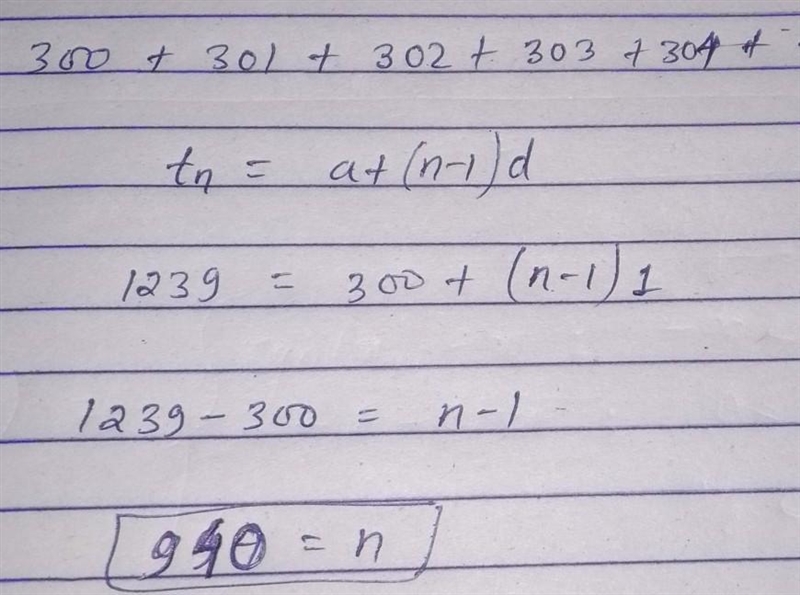 300 + 301 + 302 + 303 + 304 +
tn = a+(n-1)d
1239 = 300 + (n-1) 1
1239 - 300 = n-1
940 = n